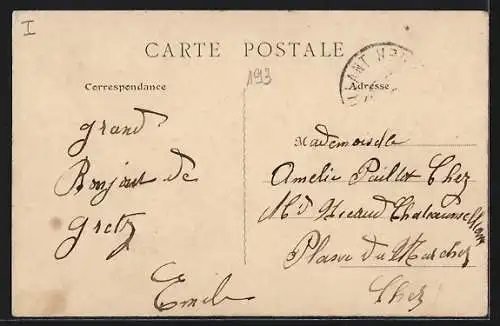 I
CARTE POSTALE
193
Correspondance
Adresse
Grand
Bonjour de
Gretz
Emile
Mademoiselle
Amelie Paillot Chez
Place du Marchez
Cher